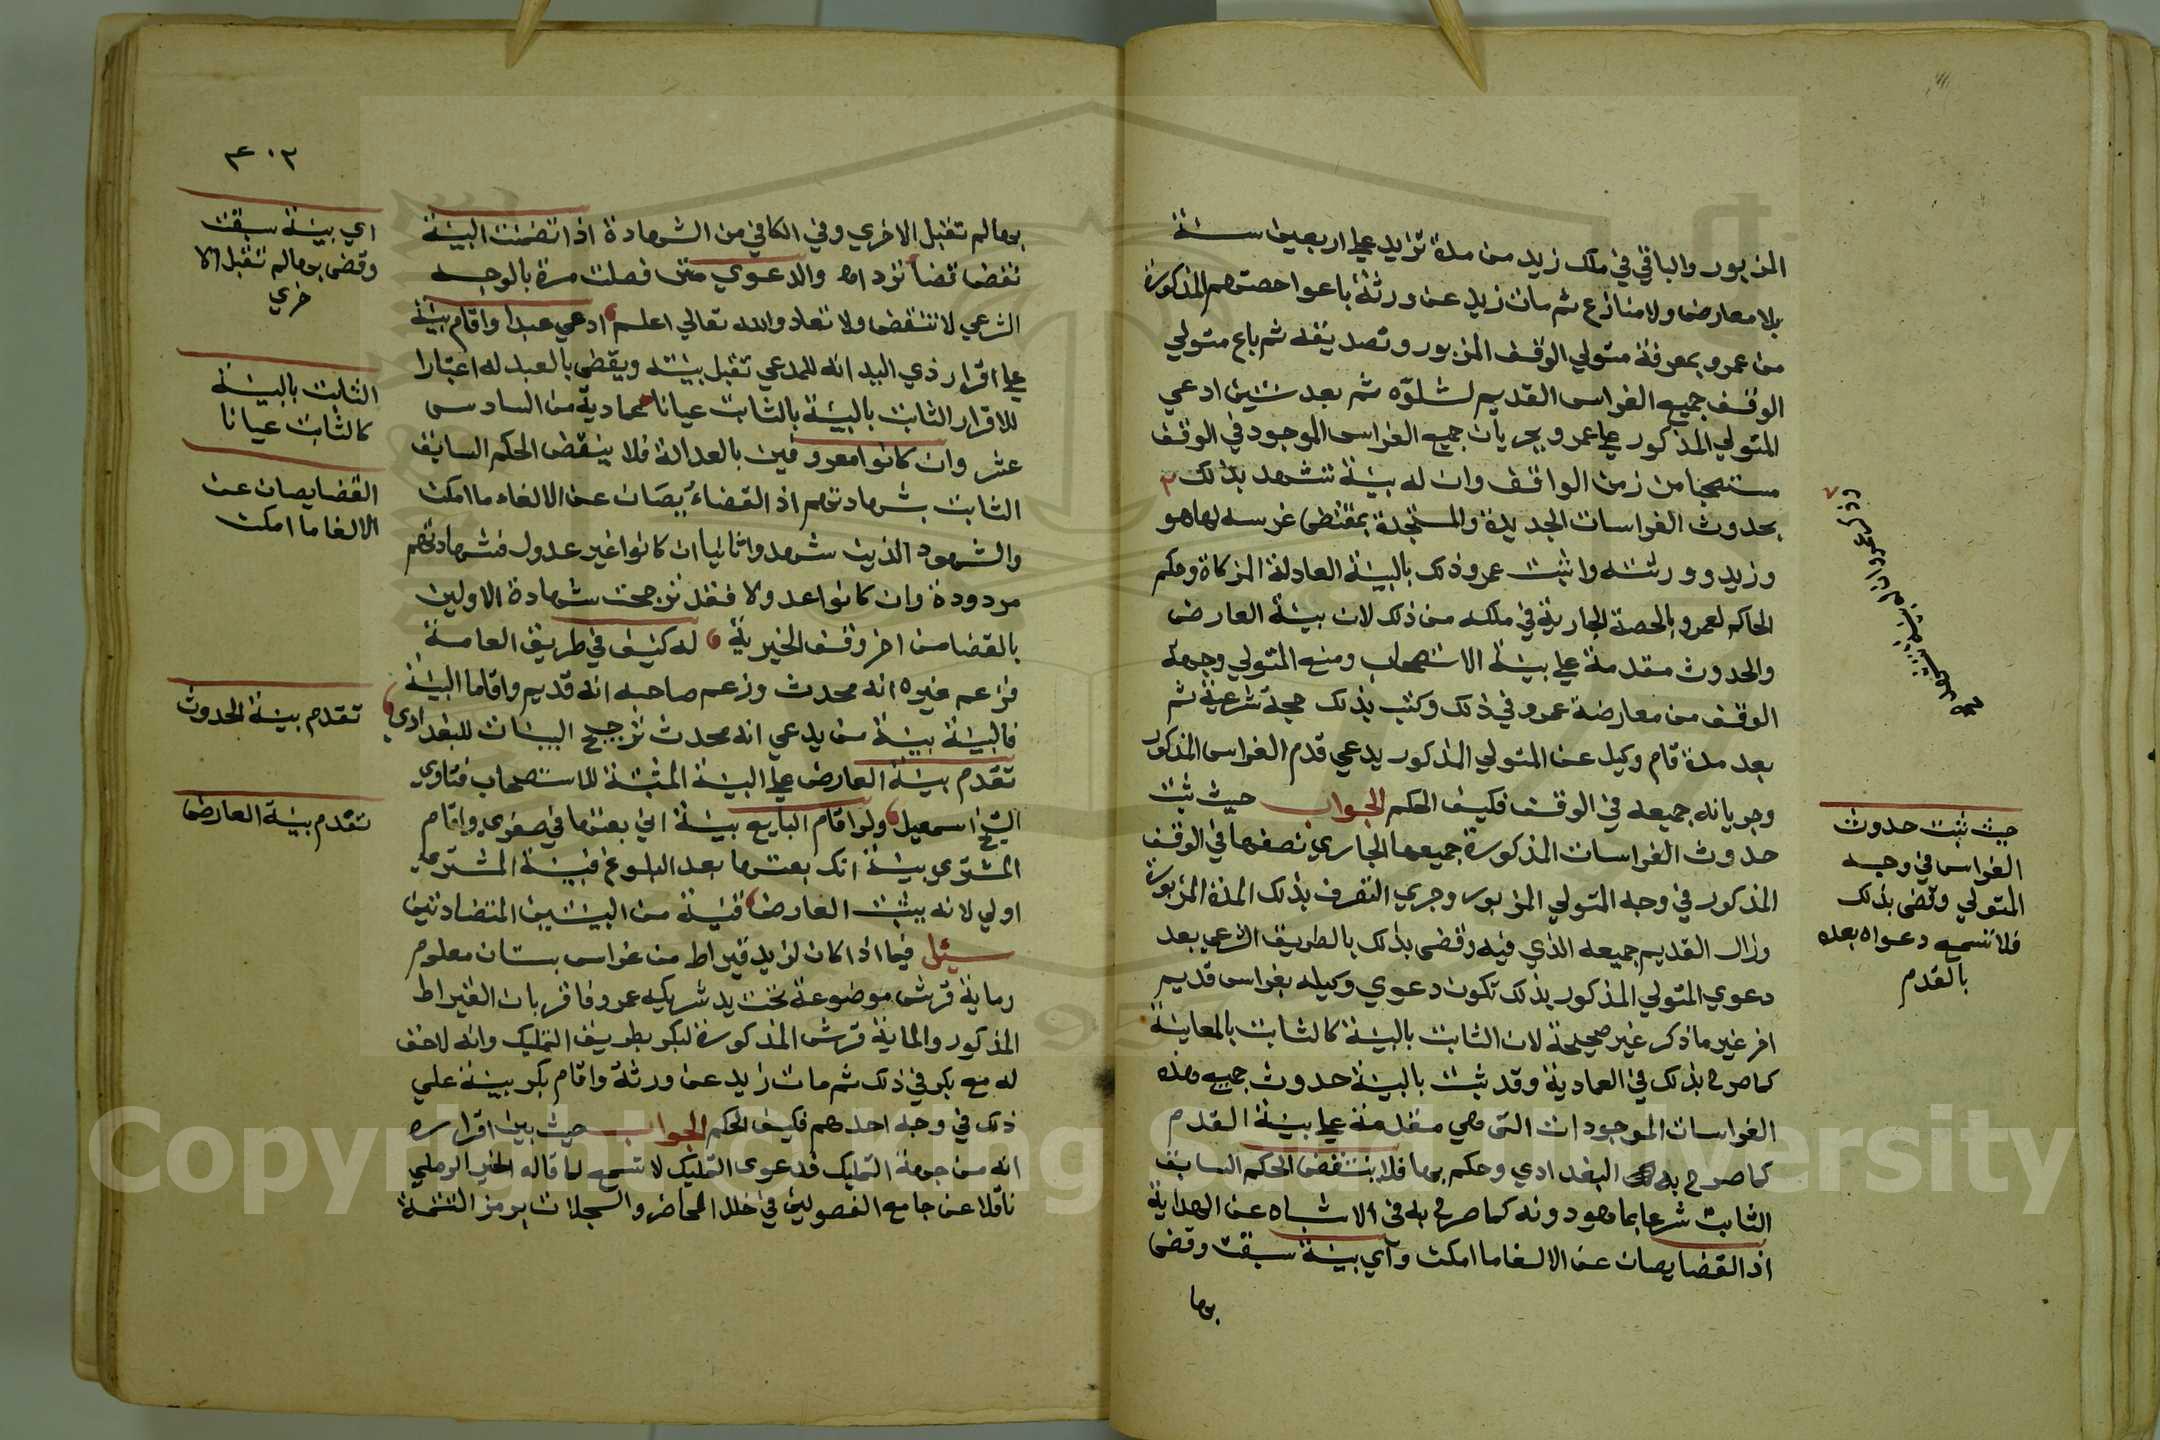 المزبور والباقي في ملك زيد من مدة تزيد علي اربعين سنة
بلا معارض ولا منازع ثم مات زيد عن ورثة باعوا حصتهم المذكورة
من عمرو بمعرفة متولي الوقف المزبور وتصديقه ثم باع متولي
الوقف جميع الغراس القديم لشلوه ثم بعد سنتين ادعي
المتولي المذكور علي عمرو بجريان جميع الغراس الموجود في الوقف
مستصحبا من زمن الواقف وان له بينة تشهد بذلك
بحدوث الغراسات الجديدة والمستجدة بمقتضى غرسه لها هو
وزيد وورثته واثبت عمرو ذلك بالبينة العادلة المزكاة وحكم
الحاكم لعمرو بالحصة الجارية في ملكه من ذلك لان بينة العارض
والحدوث مقدمة علي بينة الاستصحاب ومنع المتولي وجهة
الوقف من معارضة عمرو في ذلك وكتب بذلك حجة شرعية ثم
بعد مدة قام وكيل عن المتولي المذكور يدعي قدم الغراس المذكور
وجريانه جميعه في الوقف فكيف الحكم الجواب حيث ثبت
حدوث الغراسات المذكورة جميعها الجاري نصفها في الوقف
المذكور في وجه المتولي المزبور وجري التصرف بذلك المدة المزبورة
وزال القديم جميعه الذي فيه وقضى بذلك بالطريق الشرعي بعد
دعوي المتولي المذكور بذلك تكون دعوي وكيله بغراس قديم
اخر غير ما ذكر غير صحيحة لان الثابت بالبينة كالثابت بالمعاينة
كما صرح بذلك في العمادية وقد ثبت بالبينة حدوث جميع هذه
الغراسات الموجودات التي هي مقدمة علي بينة القدم
كما صرح به البغدادي وحكم بها فلا ينتقض الحكم السابق
الثابت شرعا بما هو دونه كما صرح به في الاشباه عن الهداية
اذ القضا يصان عن الالغا ما امكن واي بينة سبقت وقضى
بها
حيث ثبت حدوث
الغراس في وجه
المتولي وقضى بذلك
فلا تسمع دعواه بعده
بالقدم
٤٠٢
بها لم تقبل الاخري وفي الكافي من الشهادة اذا تضمنت البينة
نقض قضا ترد اه والدعوي متى فصلت مرة بالوجه
الشرعي لا تنتقض ولا تعاد والله تعالي اعلم ادعي عبدا واقام بينة
علي اقرار ذي اليد انه للمدعي تقبل بينته ويقضى بالعبد له اعتبارا
للاقرار الثابت بالبينة بالثابت عيانا عمادية من السادس
عشر وان كانوا معروفين بالعدالة فلا ينتقض الحكم السابق
الثابت بشهادتهم اذ القضاء يصان عن الالغاء ما امكن
والشهود الذين شهدوا ثانيا ان كانوا غير عدول فشهادتهم
مردودة وان كانوا عدولا فقد ترجحت شهادة الاولين
بالقضا من اخر وقف الخيرية له كنيف في طريق العامة
فزعم غيره انه محدث وزعم صاحبه انه قديم واقاما البينة
فالبينة بينة من يدعي انه محدث ترجيح البينات للبغدادي
تقدم بينة العارض علي البينة المثبتة للاستصحاب فتاوي
الشيخ اسمعيل ولو اقام البايع بينة اني بعتها في صغري واقام
المشتري بينة انك بعتها بعد البلوغ فبينة المشتري
اولي لانه يثبت العارض قنية من البينتين المتضادتين
سئل فيما اذا كان لزيد قيراط من غراس بستان معلوم
وماية قرش موضوعة تحت يد شريكه عمرو فاقر بان القيراط
المذكور والماية قرش المذكورة لبكر بطريق التمليك وانه لا حق
له مع بكر في ذلك ثم مات زيد عن ورثة واقام بكر بينة علي
ذلك في وجه احدهم فكيف الحكم الجواب حيث بين اقراره
انه من جهة التمليك فدعوى التمليك لا تسمع لما قاله الخير الرملي
ناقلا عن جامع الفصولين في خلل المحاضر والسجلات برمز التتمة
اي بينة سبقت
وقضى بها لم تقبل الا
خري
الثابت بالبينة
كالثابت عيانا
القضا يصان عن
الالغا ما امكن
تقدم بينة الحدوث
تقدم بينة العارض